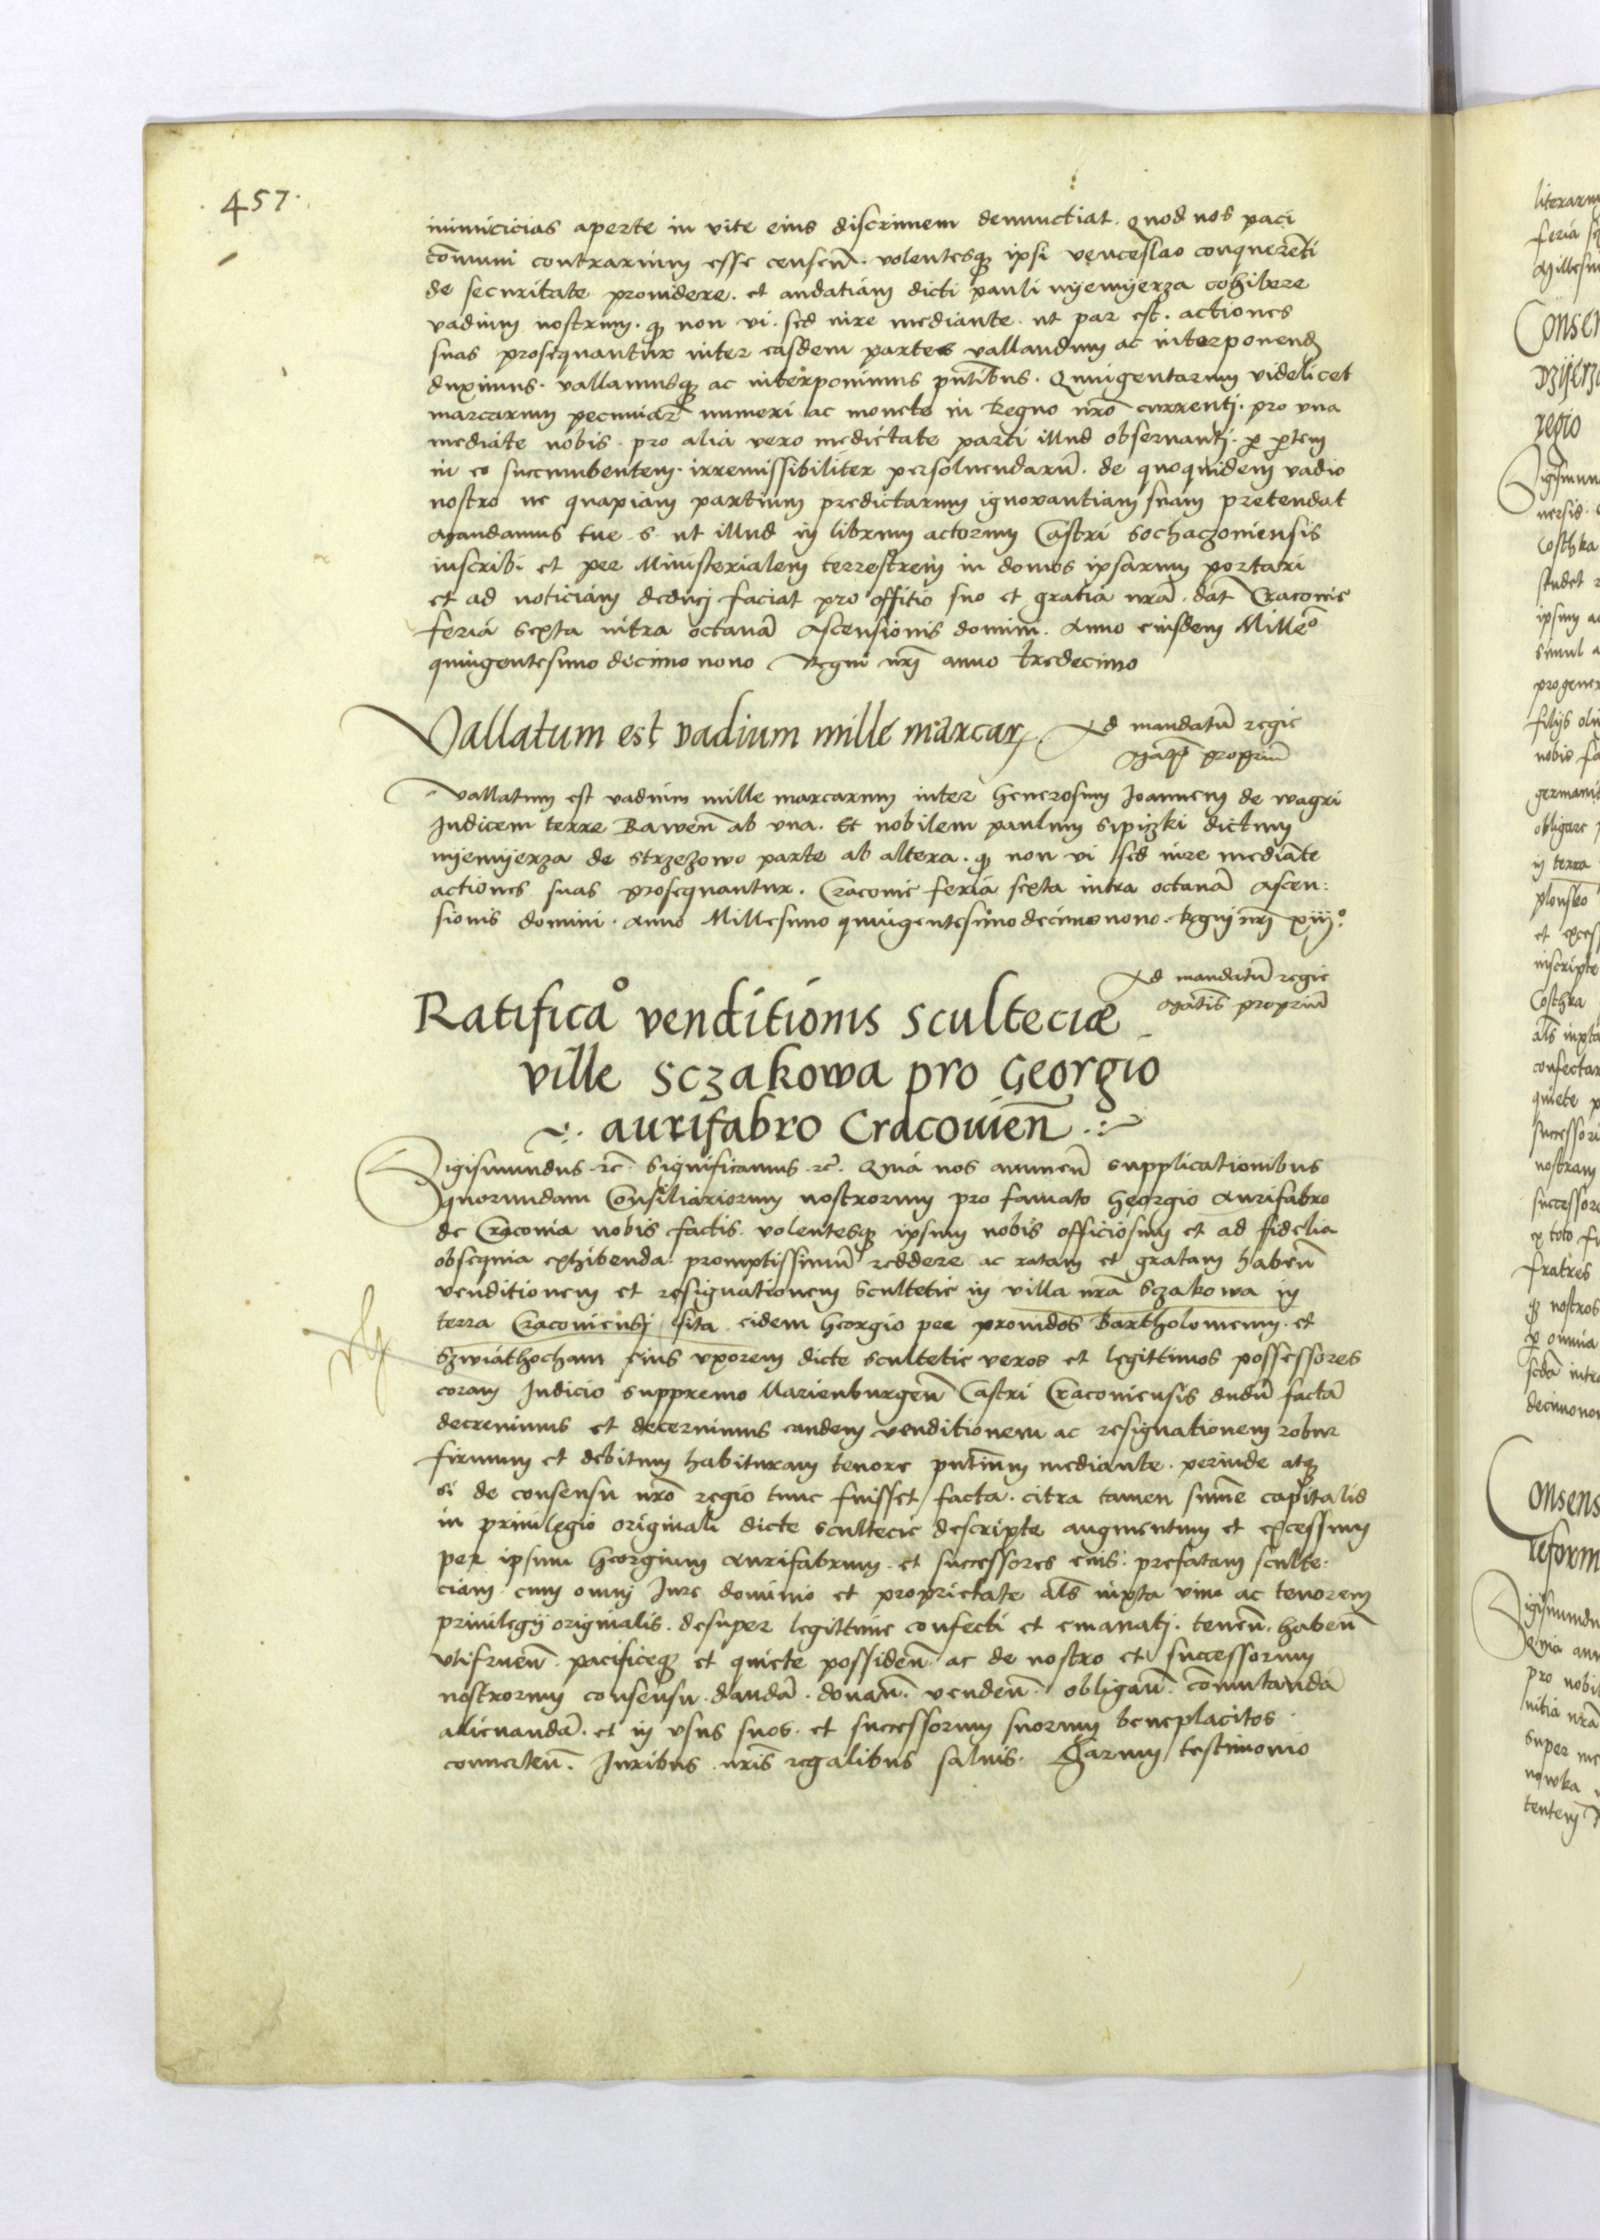 457.
inimicicias aperte in vite eius discrimen denunctiat. Quod nos paci
cōmuni contrarium esse censeñ. volentesq₃ ipsi venceslao conquerēti
de securitate providere. et audatiam dicti pauli nyemyerza cohibere
vadium nostrum. q₃ non vi. sed iure mediante. ut par est. actiones
suas prosequantur inter easdem partes vallandum ac interponend
duximus. vallamusq₃ ac interponimus pn̄tibus. Quingentarum videlicet
marcarum pecuniar̄ numeri ac monete in Regno nr̄o currentj. pro vna
mediate nobis. pro alia vero medietate parti illud observantj. ꝑ ꝑtem
in eo succumbentem. irremissibiliter persoluendarū. de quoquidem vadio
nostro ne quapiam partium predictarum ignorantiam suam pretendat
Mandamus tue s. ut illud in librum actorum Castri Sochaczoviensis
inscribi et per Ministerialem terrestrem in domos ipsarum portari
et ad noticiam deducj faciat pro offitio suo et gratia nrā. dat Cracovie
feria sexta infra octauā Ascensionis domini. Anno eiusdem Milleo
quingentesimo decimo nono Regni nrj̄ anno tredecimo
Vallatum est vadium mille marcarꝝ. Ad mandatū regie
Mātis̄ propriū
Vallatum est vadium mille marcarum inter Generosum Joannem de wagri
Judicem terre Raweñ ab vna. Et nobilem paulum Sipizki dictum
nyemyerza de Strzezowo parte ab altera. q₃ non vi sed iure mediate
actiones suas prosequantur. Cracovie feria sexta intra octauā Ascen:
sionis domini. Anno Millesimo quingentesimo decimo nono. Regni nrj̄ xiij.o
Ad mandatū regie
Mātis̄ propriū
Ratificao venditionis sculteciæ
ville Sczakowa pro Georgio
aurifabro Cracovieñ
Sigismundus rc̄. Significamus rc̄. Quia nos annueñ supplicationibus
quorundam Consiliariorum nostrorum pro famato Georgio Aurifabro
de Cracovia nobis factis. volentesq₃ ipsum nobis officiosum et ad fidelia
obsequia exhibenda promptissimū reddere ac ratam et gratam habeñ
venditionem et resignationem scultetie in villa nrā Sczakowa in
terra Cracoviensj sita. eidem Georgio per providos Bartholomeum. et
Szwiathocham eius vxorem dicte scultetie veros et legittimos possessores
coram Judicio suppremo Marienburgeñ Castri Cracoviensis dudū factā
decrevimus et decernimus eandem venditionem ac resignationem robur
firmum et debitum habituram tenore pn̄tium mediante. perinde atq₃
si de consensu nrō regio tunc fuisset facta. citra tamen sum̄e capitalis
in privilegio originali dicte scultecie descripte augmentum et excessum
per ipsum Georgium Aurifabrum. et successores eius. prefatam sculte:
ciam cum omnj Jure dominio et proprietate al̄s iuxta vim ac tenorem
privilegij originalis. desuper legittime confecti et emanatj. teneñ. habeñ
vtifrueñ. pacificeq₃ et quiete possideñ. ac de nostro et successorum
nostrorum consensu. dandā. donañ. vendeñ. obligañ. com̄utandā
alienandā. et in vsus suos. et successorum suorum beneplacitos
converteñ. Juribus nris̄ regalibus salvis. Harum testimonio